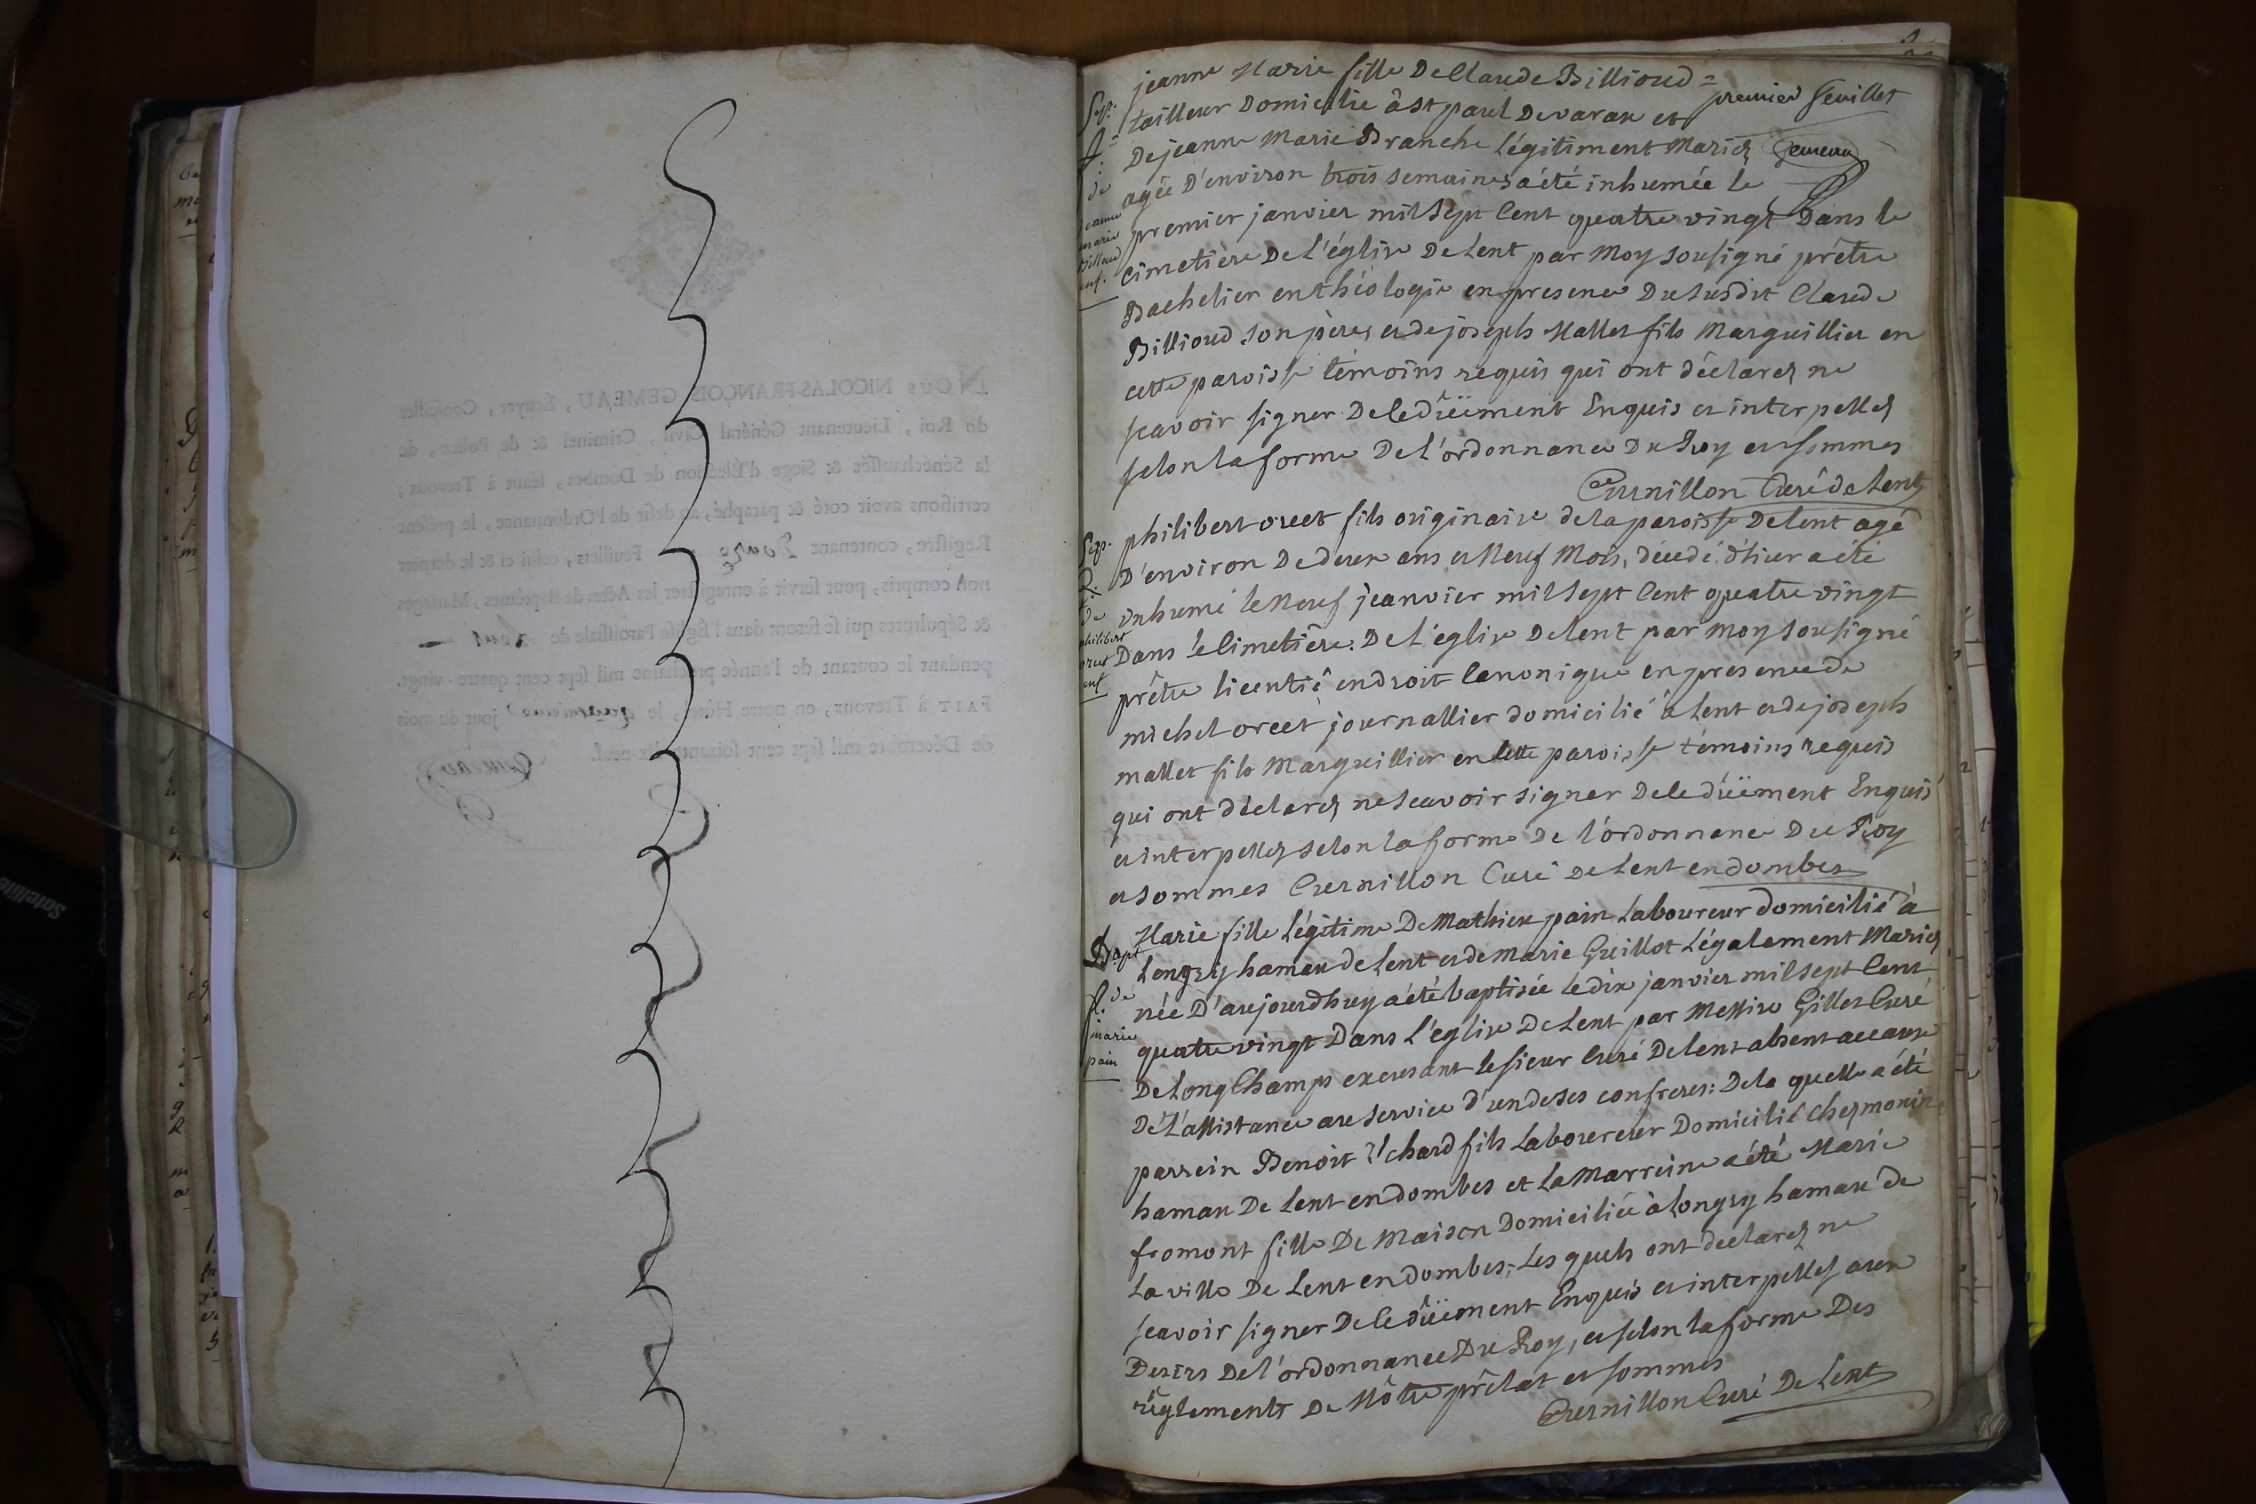 jeanne Marie fille De Claude Billioud =
tailleur Domicilie à st paul De varax et
premier feuillet
De jeanne Marie Branche Légitiment Mariez
Gemeau
agée D'environ trois semaines a été inhumée le
premier janvier mil sept Cent quatre vingt Dans le
Cimetière De L'église De Lent par Moy sousigné prêtre
Bachelier en théologie en presence Du susdit Claude
Billioud son père, et de joseph Mallet fils Marguillier en
cette paroisse témoins requis qui ont déclarez ne
scavoir signer De ce düement Enquis et interpellez
selon la forme De L'ordonnance Du Roy et sommes
Curnillon Curé de Lent
Sep.
de
jeanne
marie
Billioud
enf.
philibert orcet fils originaire de la paroisse De Lent agé
D'environ De deux ans et Neuf Mois, décedé d'hier a été
inhumé le Neuf jeanvier mil sept Cent quatre vingt
Dans le Cimetière De L'église De Lent par moy sousigné
prêtre licentié en droit Canonique en presence de
michel orcet journallier domicilié à Lent et de joseph
mallet fils Marguillier en cette paroisse témoins requis
qui ont déclarez ne scavoir signer De ce düement Enquis
et interpellez selon la forme De l'ordonnance Du Roy
et sommes Curnillon Curé De Lent en dombes
Sep.
2.
de
philibert
orcet
enf
Marie fille Légitime De Mathieu pain Laboureur domicilié à
Longry hamau de Lent et de marie Guillot Légalement Mariez
née D'aujourdhuy a été baptisée le dix janvier mil sept Cent
quatre vingt Dans L'église De Lent par Messire Gilles Curé
De Long Champs excusant le sieur Curé De Lent absent accause
De L'assistance au service d'un de ses confreres: De la quelle a été
parrein Benoit Richard fils Laboureur Domicilié Chezmonin
hamau De Lent en dombes et La Marreine a été Marie
fromont fille De Maison Domiciliée à Longry hamau de
La ville De Lent en dombes; Les quels ont déclarez ne
scavoir signer De ce düement Enquis et interpellez aux
Desirs De l'ordonnance Du Roy, et selon la forme Des
règlements De Nôtre prêlat et sommes
Curnillon Curé De Lent
Bapt
de
marie
pain
NOUS NICOLAS-FRANÇOIS GEMEAU, Écuyer, Conseiller
du Roi, Lieutenant Général Civil, Criminel & de Police, de
la Sénéchaussée & Siege d'Élection de Dombes, séant à Trevoux,
certifions avoir coté & paraphé, au desir de l'Ordonnance, le présent
Registre, contenant Douze Feuillets, celui ci & le dernier
non compris, pour servir à enregistrer les Actes de Baptêmes, Mariages
& Sépultures qui se feront dans l'Église Paroissiale de Lent
pendant le courant de l'année prochaine mil sept cent quatre-vingt.
FAIT à Trevoux, en notre Hôtel, le jour du mois
de Décembre mil sept cent soixante-dix-neuf.
Gemeau
Satellite